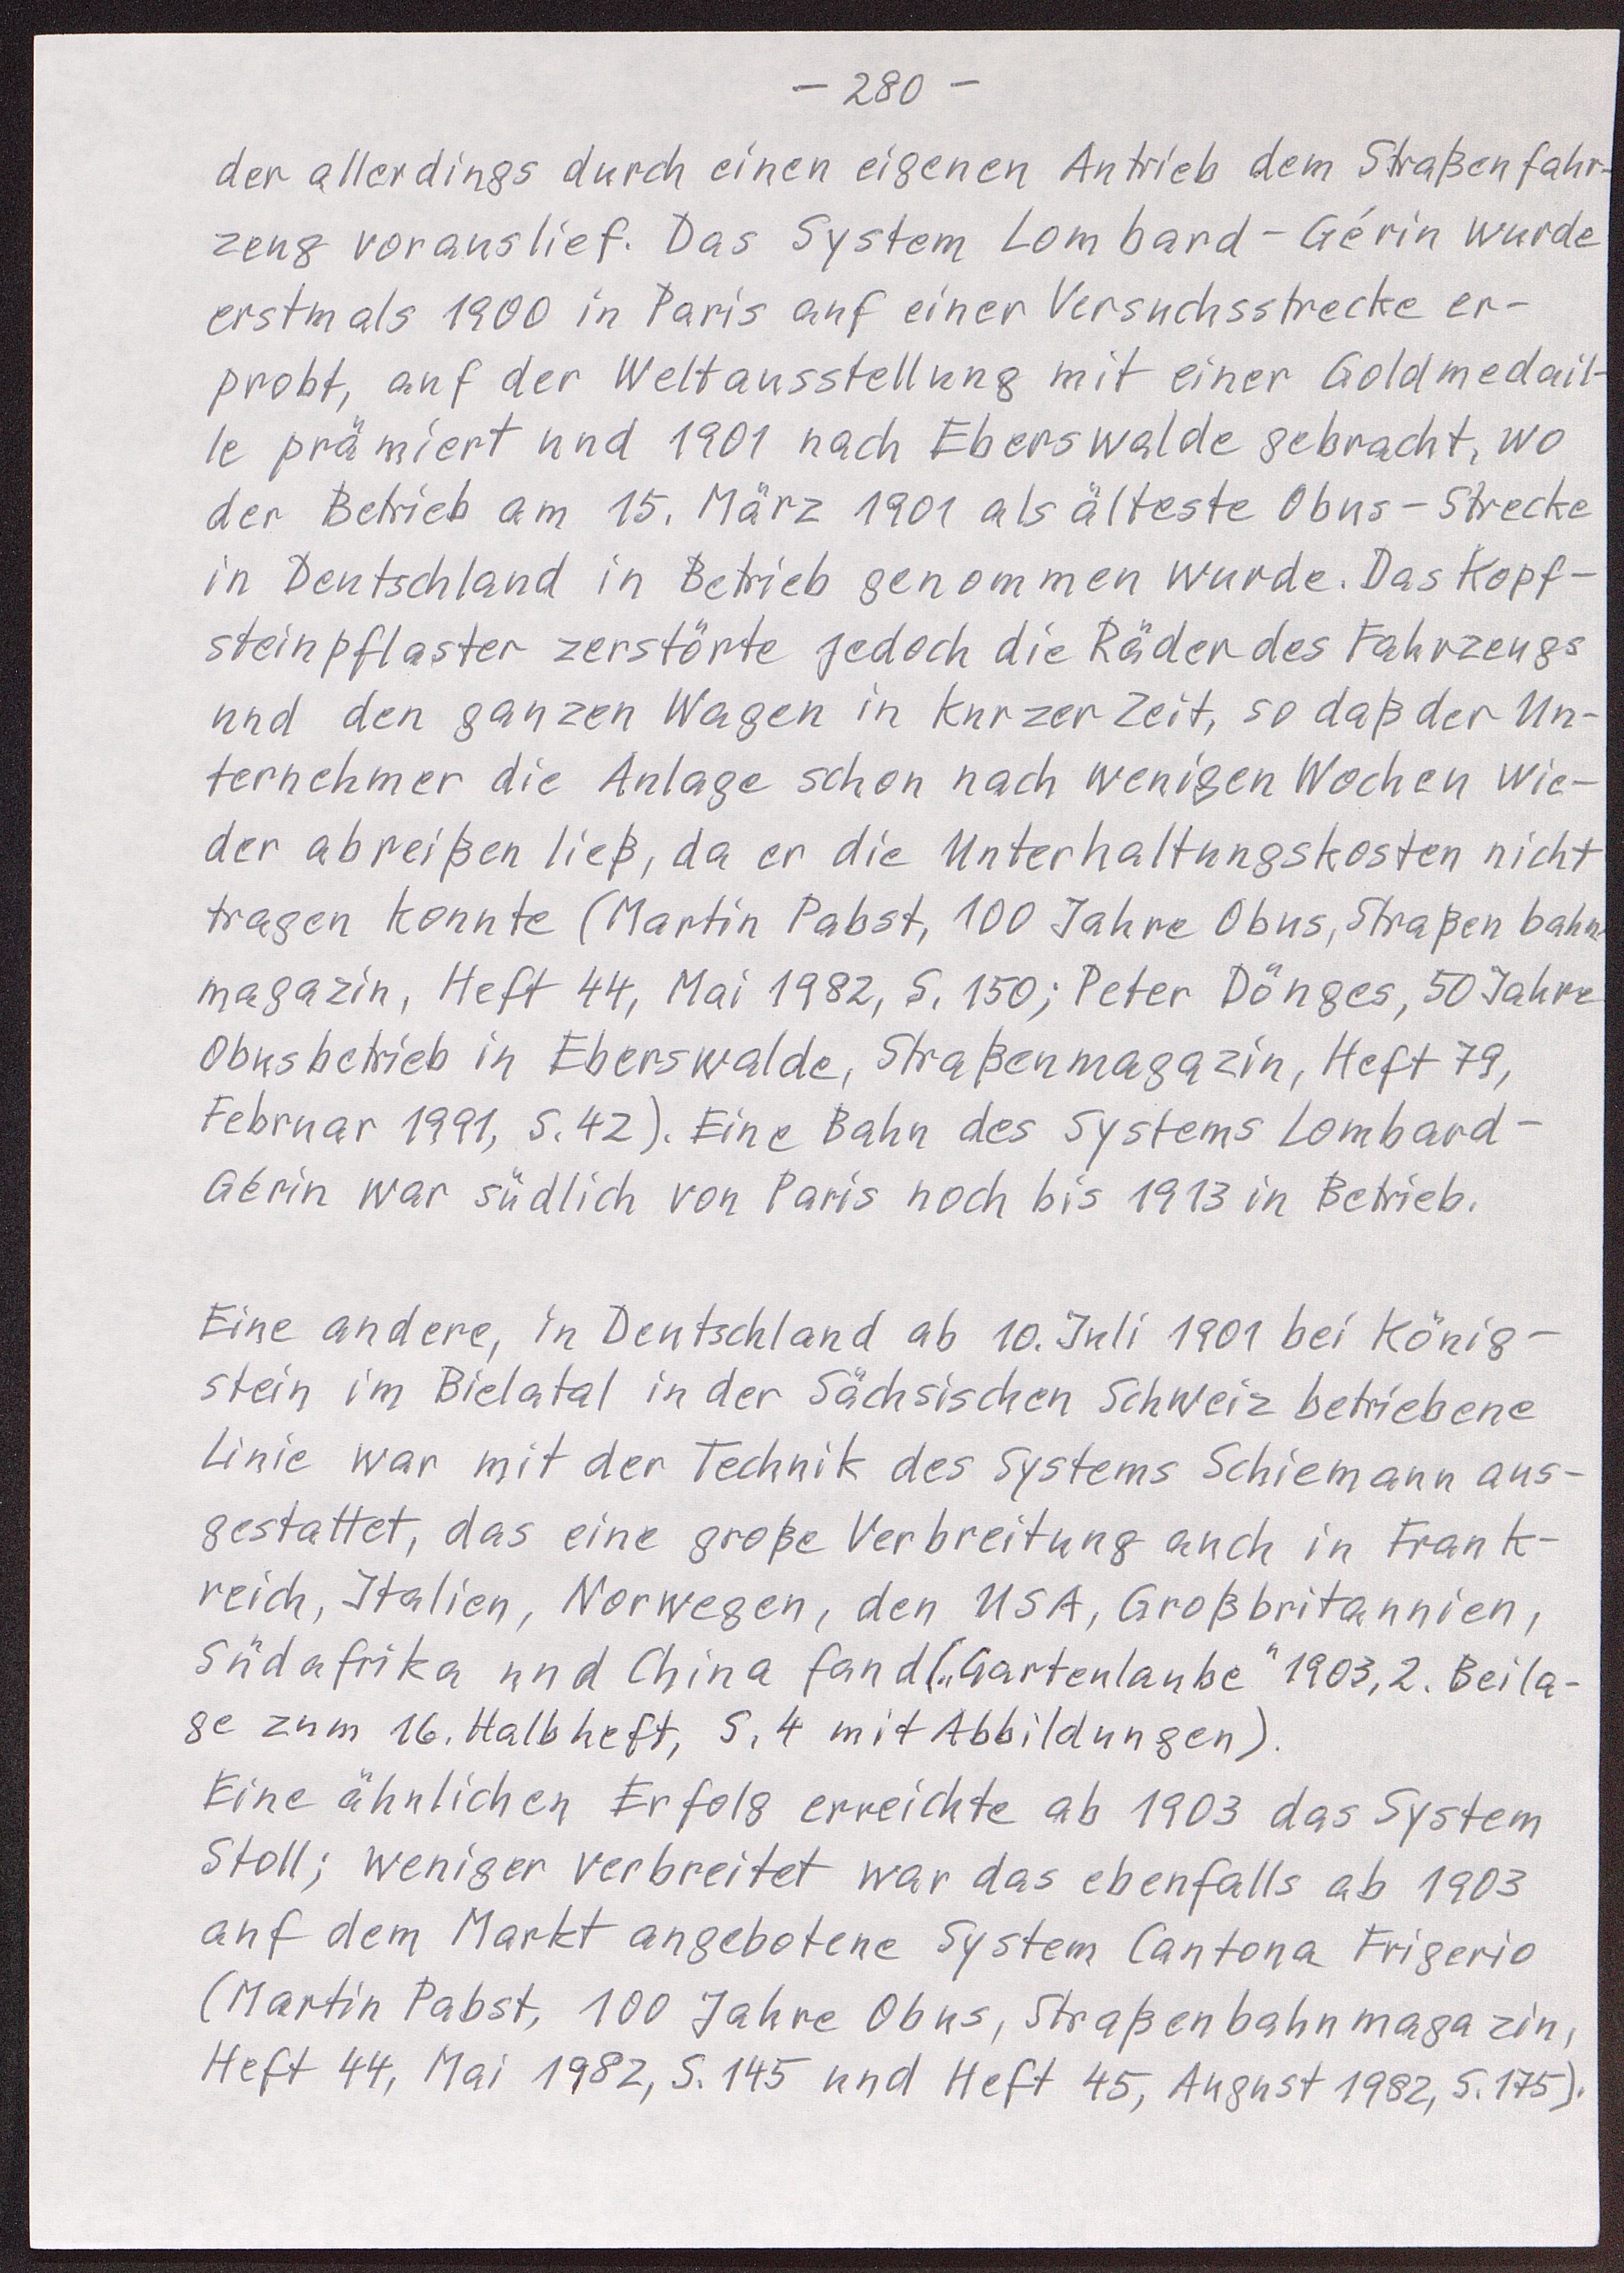 – 280 –
der allerdings durch einen eigenen Antrieb dem Straßenfahr-
zeug vorauslief. Das System Lombard-Gérin wurde
erstmals 1900 in Paris auf einer Versuchsstrecke er-
probt, auf der Weltausstellung mit einer Goldmedail-
le prämiert und 1901 nach Eberswalde gebracht, wo
der Betrieb am 15. März 1901 als älteste Obus-Strecke
in Deutschland in Betrieb genommen wurde. Das Kopf-
steinpflaster zerstörte jedoch die Räder des Fahrzeugs
und den ganzen Wagen in kurzer Zeit, so daß der Un-
ternehmer die Anlage schon nach wenigen Wochen wie-
der abreißen ließ, da er die Unterhaltungskosten nicht
tragen konnte (Martin Pabst, 100 Jahre Obus, Straßenbahn-
magazin, Heft 44, Mai 1982, S. 150; Peter Dönges, 50 Jahre
Obusbetrieb in Eberswalde, Straßenmagazin, Heft 79,
Februar 1991, S. 42). Eine Bahn des Systems Lombard-
Gérin war südlich von Paris noch bis 1913 in Betrieb.
Eine andere, in Deutschland ab 10. Juli 1901 bei König-
stein im Bielatal in der Sächsischen Schweiz betriebene
Linie war mit der Technik des Systems Schiemann aus-
gestattet, das eine große Verbreitung auch in Frank-
reich, Italien, Norwegen, den USA, Großbritannien,
Südafrika und China fand („Gartenlaube" 1903, 2. Beila-
ge zum 16. Halbheft, S. 4 mit Abbildungen).
Eine ähnlichen Erfolg erreichte ab 1903 das System
Stoll; weniger verbreitet war das ebenfalls ab 1903
auf dem Markt angebotene System Cantona Frigerio
(Martin Pabst, 100 Jahre Obus, Straßenbahnmagazin,
Heft 44, Mai 1982, S. 145 und Heft 45, August 1982, S. 175).